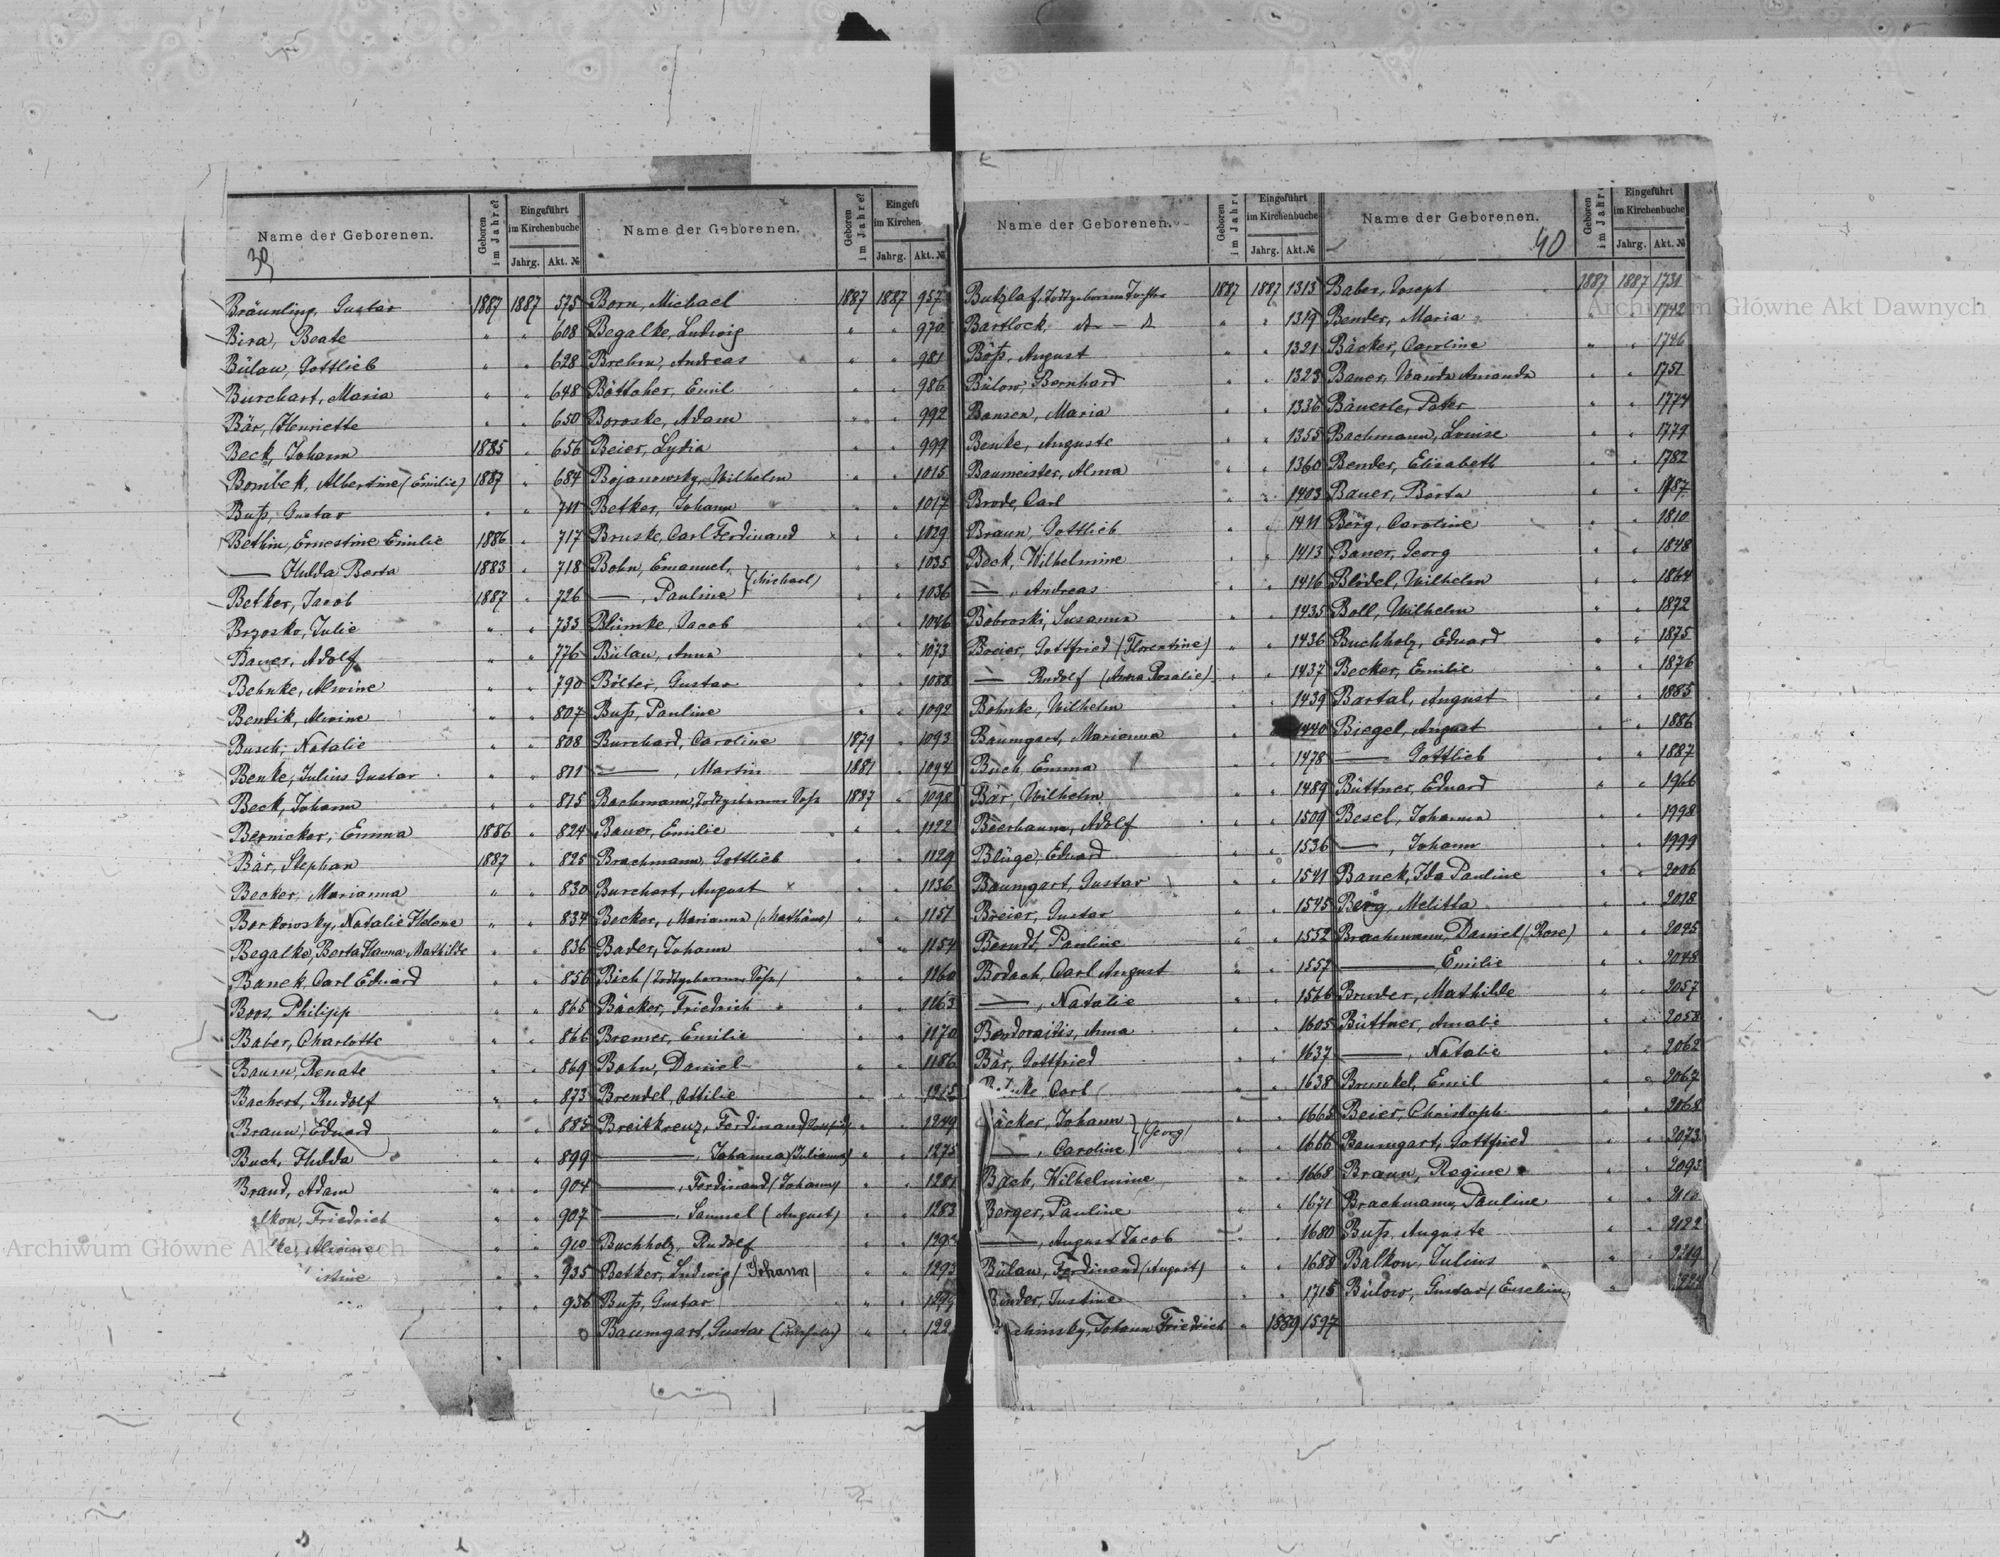 Name der Geborenen.
Geboren im Jahre?
Eingeführt im Kirchenbuche
Jahrg. Akt. №
39
Bräunling, Gustav 1887 1887 575
Bira, Beate " " 608
Bülau, Gottlieb " " 628
Burchart, Maria " " 648
Bär, Henriette " " 650
Beck, Johann 1885 " 656
Bombek, Albertine (Emilie) 1887 " 684
Buß, Gustav " " 711
Bethin, Ernestine Emilie 1886 " 717
— Hulda Berta 1883 " 718
Betker, Jacob 1887 " 726
Brzosko, Julie " " 735
Bauer, Adolf " " 776
Behnke, Alwine " " 790
Bendik, Alwine " " 807
Busch, Natalie " " 808
Benke, Julius Gustav " " 811
Beck, Johann " " 815
Bernicker, Emma 1886 " 824
Bär, Stephan 1887 " 825
Becker, Marianna " " 830
Borkowsky, Natalie Helene " " 834
Begalke, Berta Hanna Mathilde " " 836
Banek, Carl Eduard " " 856
Boos, Philipp " " 865
Baber, Charlotte " " 866
Baum, Renate " " 869
Bachert, Rudolf " " 873
Braun, Eduard " " 885
Buch, Hulda " " 899
Brand, Adam " " 904
lkon, Friedrich " " 907
ke, Alwine " " 910
" " 935
" " 956
Name der Geborenen.
Geboren im Jahre?
Eingefü
im Kirchen
Jahrg. Akt. №
Born, Michael 1887 1887 957
Begalke, Ludwig " " 970
Brehm, Andreas " " 981
Böttcher, Emil " " 986
Boroske, Adam " " 992
Beier, Lydia " " 999
Bojanowsky, Wilhelm " " 1015
Betker, Johann " " 1017
Bruske, Carl Ferdinand " " 1029
Bohn, Emanuel, " " 1035
— , Pauline (Michael) " " 1036
Blümke, Jacob " " 1046
Bülau, Anna " " 1073
Bölter, Gustav " " 1088
Buß, Pauline " " 1092
Burchard, Caroline 1879 " 1093
— , Martin 1881 " 1094
Bachmann, 1887 " 1098
Bauer, Emilie " " 1122
Brachmann, Gottlieb " " 1129
Burchart, August " " 1136
Becker, Marianna (Mathäus) " " 1151
Bader, Johann " " 1154
Bich " " 1160
Bäcker, Friedrich " " 1163
Bremer, Emilie " " 1170
Bohn, Daniel " " 1186
Brendel, Ottilie " " 1215
Breitkreuz, Ferdinand " " 1249
— , Johanna (Julianna) " " 1275
— , Ferdinand (Johann) " " 1281
— , Samuel (August) " " 1283
Buchholz, Rudolf " "
Betker, Ludwig (Johann) " " 1293
Buß, Gustav " "
Baumgart, Gustav " "
Name der Geborenen.
Geboren im Jahre
Eingeführt im Kirchenbuche
Jahrg. Akt. №
Butzlaf, 1887 1887 1313
Bartlock, " " 1319
Böß, August " " 1321
Bülow, Bernhard " " 1323
Bansen, Maria " " 1336
Benke, Auguste " " 1355
Baumeister, Alma " " 1360
Brode, Carl " " 1403
Braun, Gottlieb " " 1411
Beck, Wilhelmine " " 1413
— , Andreas " " 1416
Bobroski, Susanna " " 1435
Breier, Gottfried (Florentine) " " 1436
— Rudolf (Anna Rosalie) " " 1437
Böhnke, Wilhelm " " 1439
Baumgart, Marianna " " 1440
Buch, Emma " " 1478
Bär, Wilhelm " " 1489
Beerbaum, Adolf " " 1509
Blüge, Eduard " " 1536
Baumgart, Gustav " " 1541
Breier, Gustav " " 1545
Berndt, Pauline " " 1552
Bodach, Carl August " " 1557
— , Natalie " " 1566
Bendoraitis, Anna " " 1605
Bär, Gottfried " " 1637
Carl " " 1638
äcker, Johann " " 1665
— , Caroline (Georg) " " 1666
Bach, Wilhelmine " " 1668
Berger, Pauline " " 1671
— , August Jacob " " 1680
Bülau, Ferdinand (August) " " 1688
Binder, Justine " " 1715
chinsky, Johann Friedrich " 1889 1597
Name der Geborenen.
Geboren im Jahre
Eingeführt im Kirchenbuche
Jahrg. Akt. №
40
Baber, Joseph 1887 1887 1731
Bender, Maria " " 1742
Bäcker, Caroline " " 1746
Bauer, Wanda Amanda " " 1751
Bäuerle, Peter " " 1774
Bachmann, Louise " " 1779
Bender, Elisabeth " " 1782
Bauer, Berta " " 1787
Berg, Caroline " " 1810
Bauer, Georg " " 1848
Blödel, Wilhelm " " 1864
Boll, Wilhelm " " 1872
Buchholz, Eduard " " 1875
Becker, Emilie " " 1876
Bartal, August " " 1885
Biegel, August " " 1886
— Gottlieb " " 1887
Büttner, Eduard " " 1966
Besel, Johanna " " 1998
— , Johann " " 1999
Banek, Ida Pauline " " 2006
Berg, Melitta " " 2018
Brachmann, Daniel (Rose) " " 2045
— , Emilie " " 2048
Bruder, Mathilde " " 2057
Büttner, Amalie " " 2058
— , Natalie " " 2062
Brunkel, Emil " " 2067
Beier, Christoph " " 2068
Baumgart, Gottfried " " 2073
Braun, Regine " " 2093
Brachmann, Pauline " "
Buß, Auguste " " 2122
Balkon, Julius " " 2219
Bülow, Gustav
Archiwum Główne Akt Dawnych
Archiwum Główne Akt Dawnych